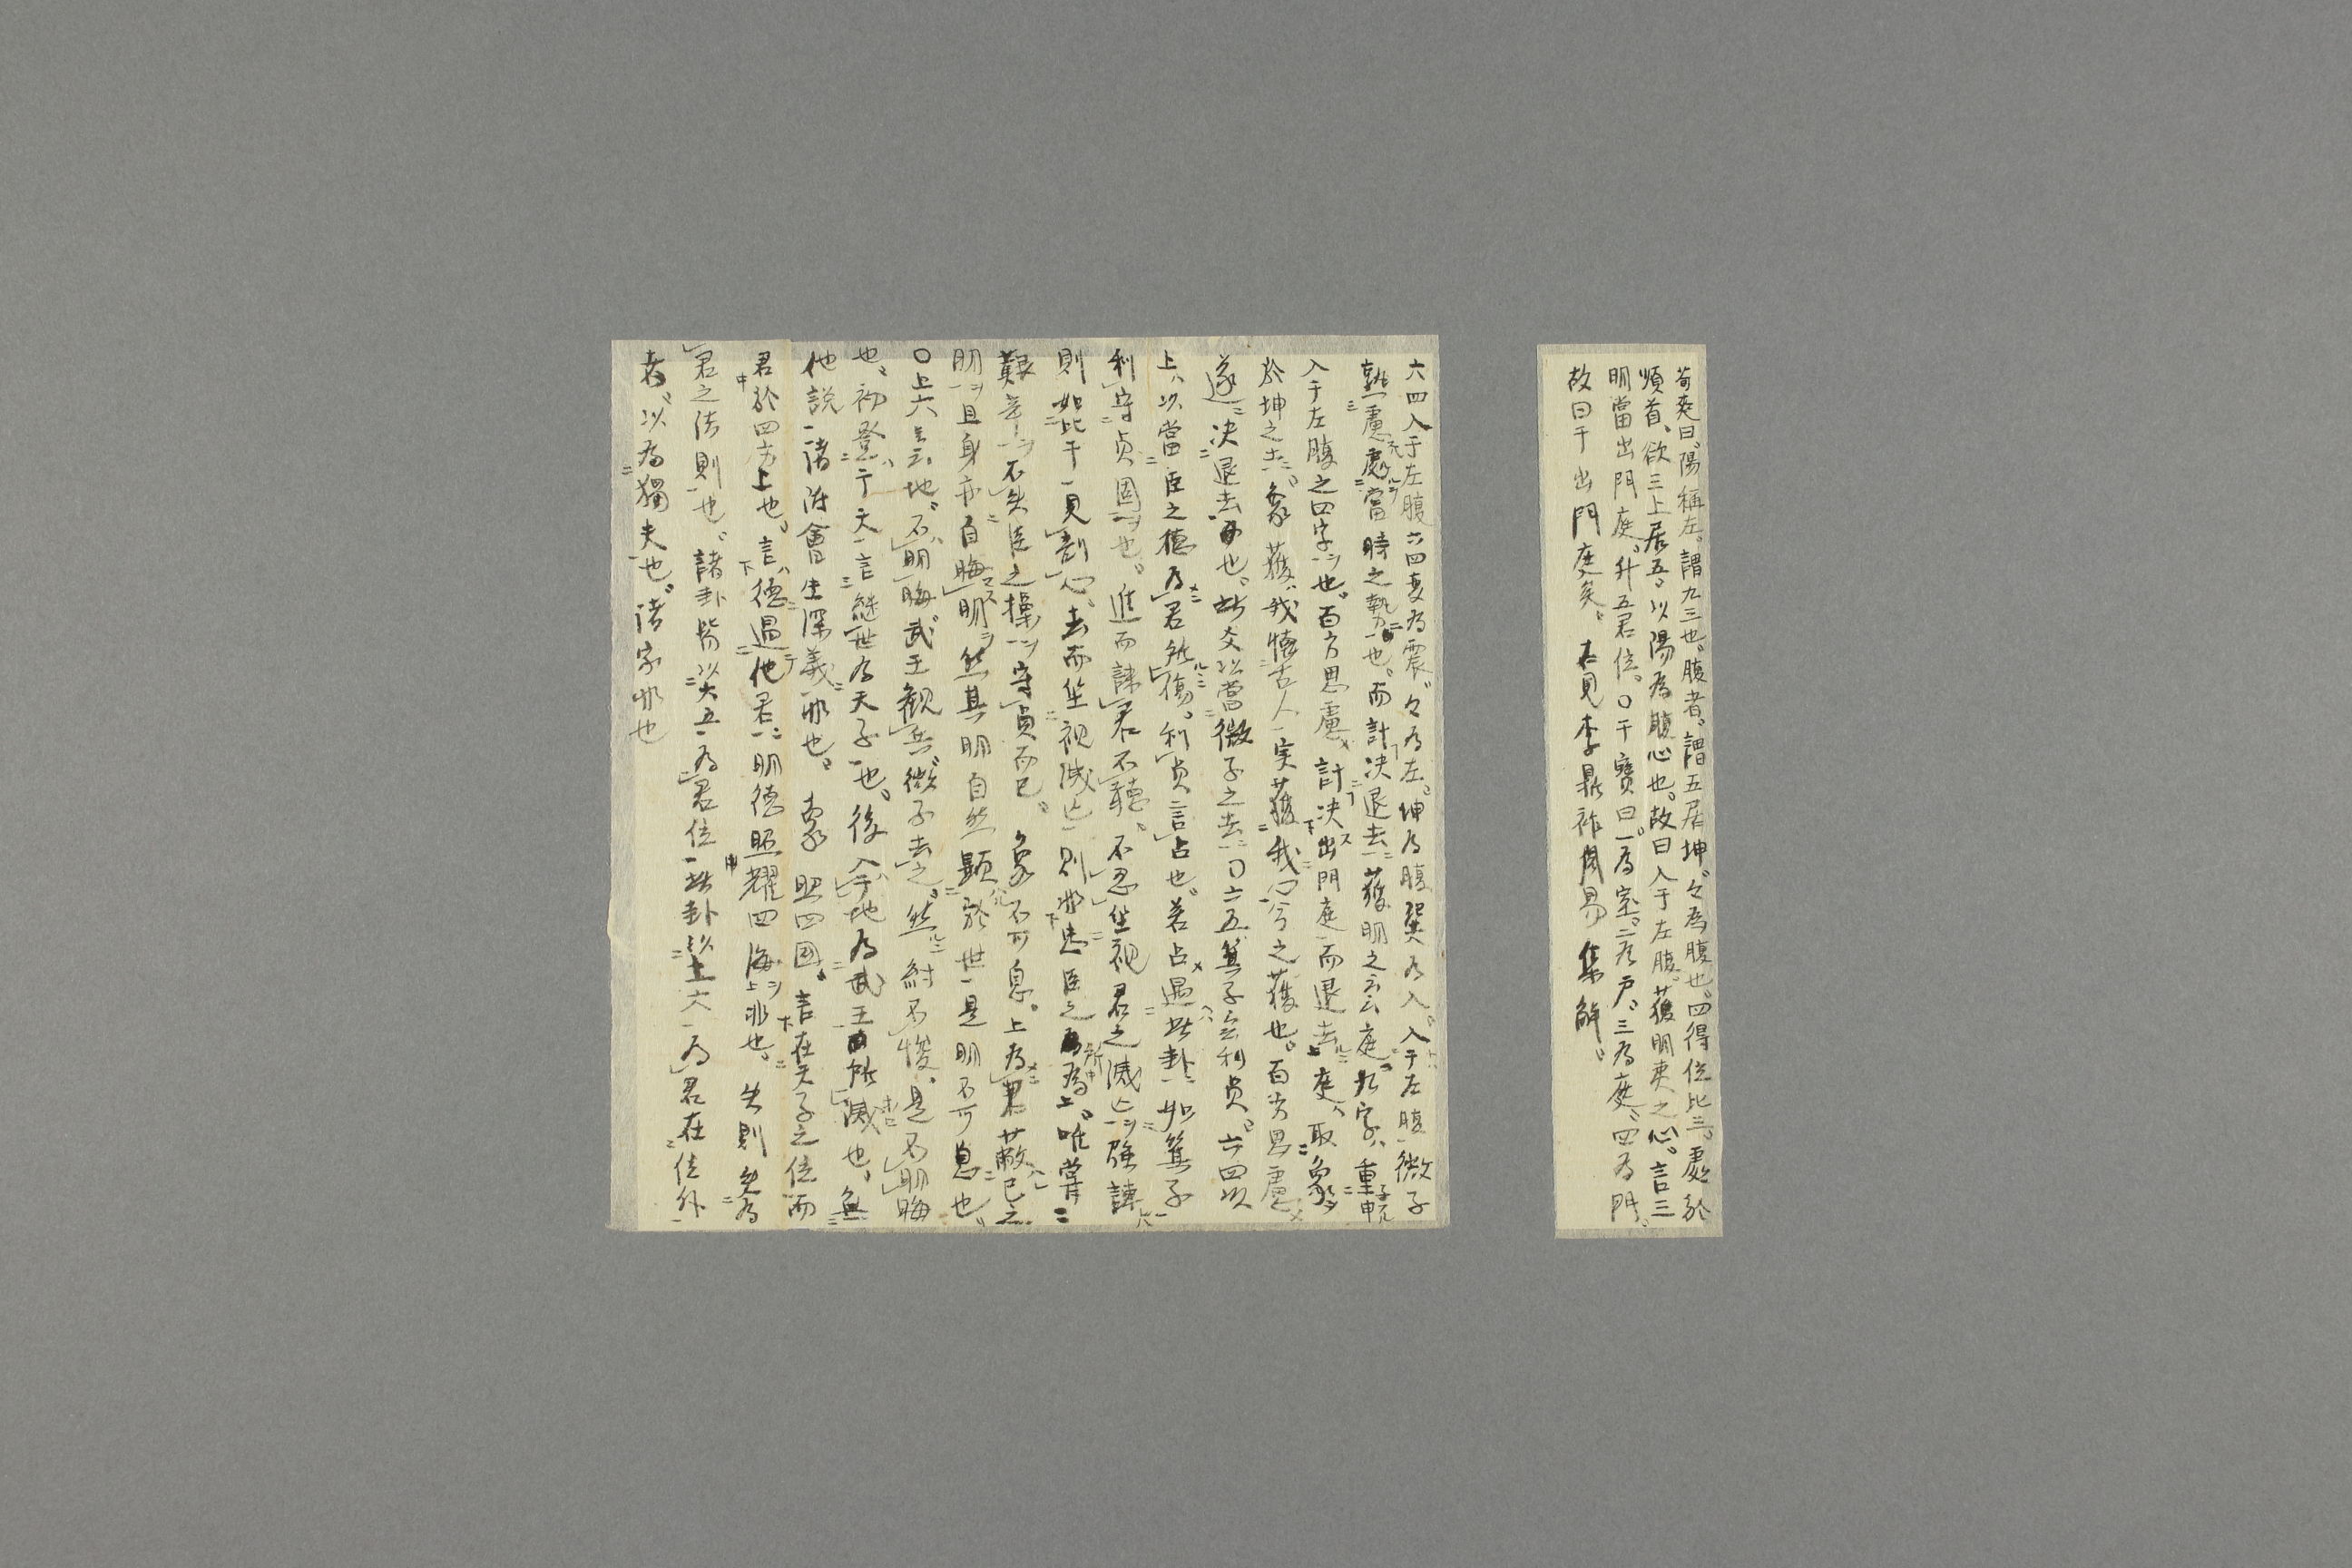 荀爽曰陽稱左。謂九三也。腹者、謂五居坤。々為腹也。四得位比三。處於
順首、欲三上居五。以陽為腹心也。故曰入于左腹。獲明夷之心。言三
明當出門庭。升五君位。〇干寶曰。一為室。二為戸。三為庭、四為門。
故曰于出門庭矣。 右見李鼎祚周易集解。
六四入于左腹六四変為震。々為左。坤為腹巽為入。入于左腹微子
熟慮處當時之勢也。而計決退去獲明之云庭九字、重申
入于左腹之四字也。百方思慮計決出門庭而退去庭、取象
於坤之土。象獲我憶古人実獲我心今之獲也。百方思慮
遂決退去也。此爻以當微子之去〇六五箕子云利貞。六四以
上、以當臣之德為君所傷。利貞言占也。若占遇此卦如箕子
利守貞固也。進而諫君不聽。不忍坐視君之滅亡強諫
則如比干見割心、去而坐視滅亡則非忠臣之所為。唯嘗
艱辛不失臣之操守貞而已。象不可息。上為君蔽己之
明且身亦自晦明然其明自然顯於世是明不可息也。
〇上六云云地。不明晦武王観兵微子去之。然紂不悛、是不明晦
也。初登于天言継世為天子也。後入于地為武王所滅也。無
他説諸附會生深義非也。 象照四國。言在天子之位而
君於四方上也。言德過他君明德照耀四海非也。 失則免為
君之法則也。諸卦皆以六五為君位此卦以上六為君在位外
者。以為獨夫也。諸家非也